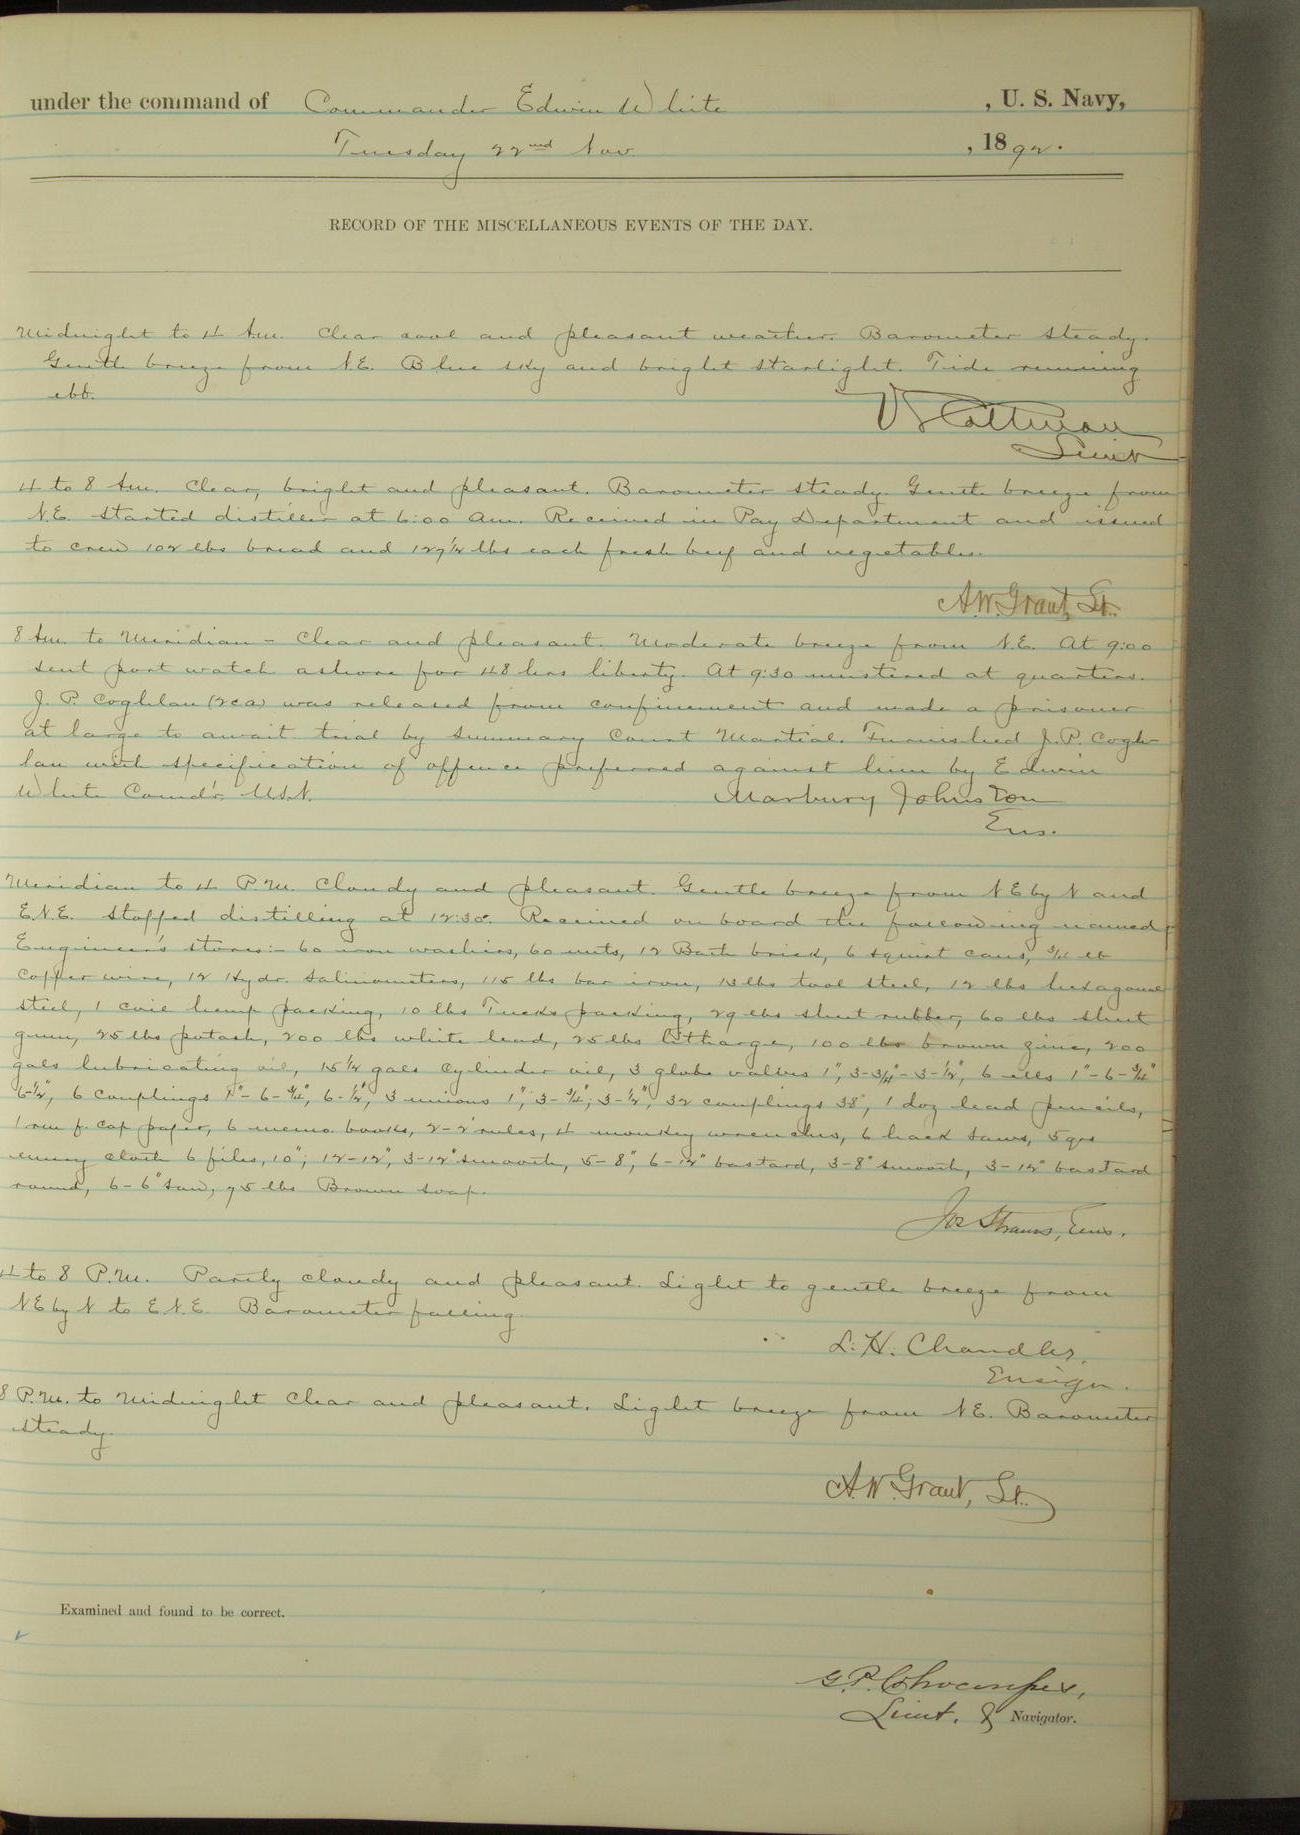 under the command of Commander Edwin White , U. S. Navy,
Tuesday 22nd Nov. , 1892.
RECORD OF THE MISCELLANEOUS EVENTS OF THE DAY.
Midnight to 4 Am. Clear cool and pleasant weather. Barometer steady.
Gentle breeze from N.E. Blue sky and bright starlight. Tide running
ebb.
Lieut
4 to 8 Am. Clear, bright and pleasant. Barometer steady. Gentle breeze from
N.E. Started distiller at 6:00 Am. Received in Pay Department and issued
to crew 102 lbs bread and 127½ lbs each fresh beef and vegetables.
A.W. Grant, Lt.
8 Am. to Meridian - Clear and pleasant. Moderate breeze from N.E. At 9:00
sent port watch ashore for 48 hrs liberty. At 9:30 mustered at quarters.
J. P. Coghlan (2ca) was released from confinement and made a prisoner
at large to await trial by Summary Court Martial. Furnished J. P. Cogh-
lan with specification of offence preferred against him by Edwin
White Comd'r. U.S.N.
Marbury Johnston
Ens.
Meridian to 4 P.M. Cloudy and pleasant. Gentle breeze from NE by N and
E.N.E. Stopped distilling at 12:30. Received on board the following named
Engineer's stores:- 60 iron washers, 60 nuts, 12 Bath brick, 6 squirt cans, ¾ lb
copper wire, 12 Hydr. Salinometers, 115 lbs bar iron, 13 lbs tool steel, 12 lbs hexagonal
steel, 1 coil hemp packing, 10 lbs Tucks packing, 29 lbs sheet rubber, 60 lbs sheet
gum, 25 lbs potash, 200 lbs white lead, 25 lbs litharge, 100 lbs brown zinc, 200
gals lubricating oil, 15¼ gals cylinder oil, 3 globe valves 1", 3-¾"-3-½", 6 ells 1"-6-¾"
6-½", 6 couplings 1"-6-¾", 6-½", 3 unions 1", 3-¾"; 3-½", 32 couplings 38", 1 doz lead pencils,
1 rm f. cap paper, 6 memo. books, 2-2' rules, 4 monkey wrenches, 6 hack saws, 5 qrs
emery cloth 6 files, 10"; 12-12", 3-12" smooth, 5-8", 6-12" bastard, 3-8" smooth, 3-12" bastard
round, 6-6" saw, 75 lbs Brown soap.
Jos Strauss, Ens.
4 to 8 P.M. Partly cloudy and pleasant. Light to gentle breeze from
NE by N to E.N.E. Barometer falling.
L. H. Chandler,
Ensign.
8 P.M. to Midnight Clear and pleasant. Light breeze from NE. Barometer
steady.
A.W. Grant, Lt.
Examined and found to be correct.
Lieut. & Navigator.